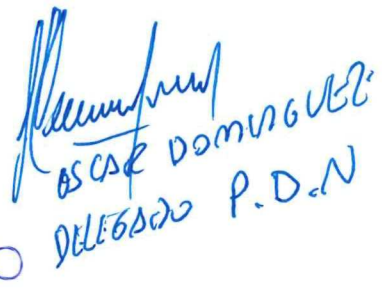 OSCAR DOMINGUEZ
DELEGADO P.D.N